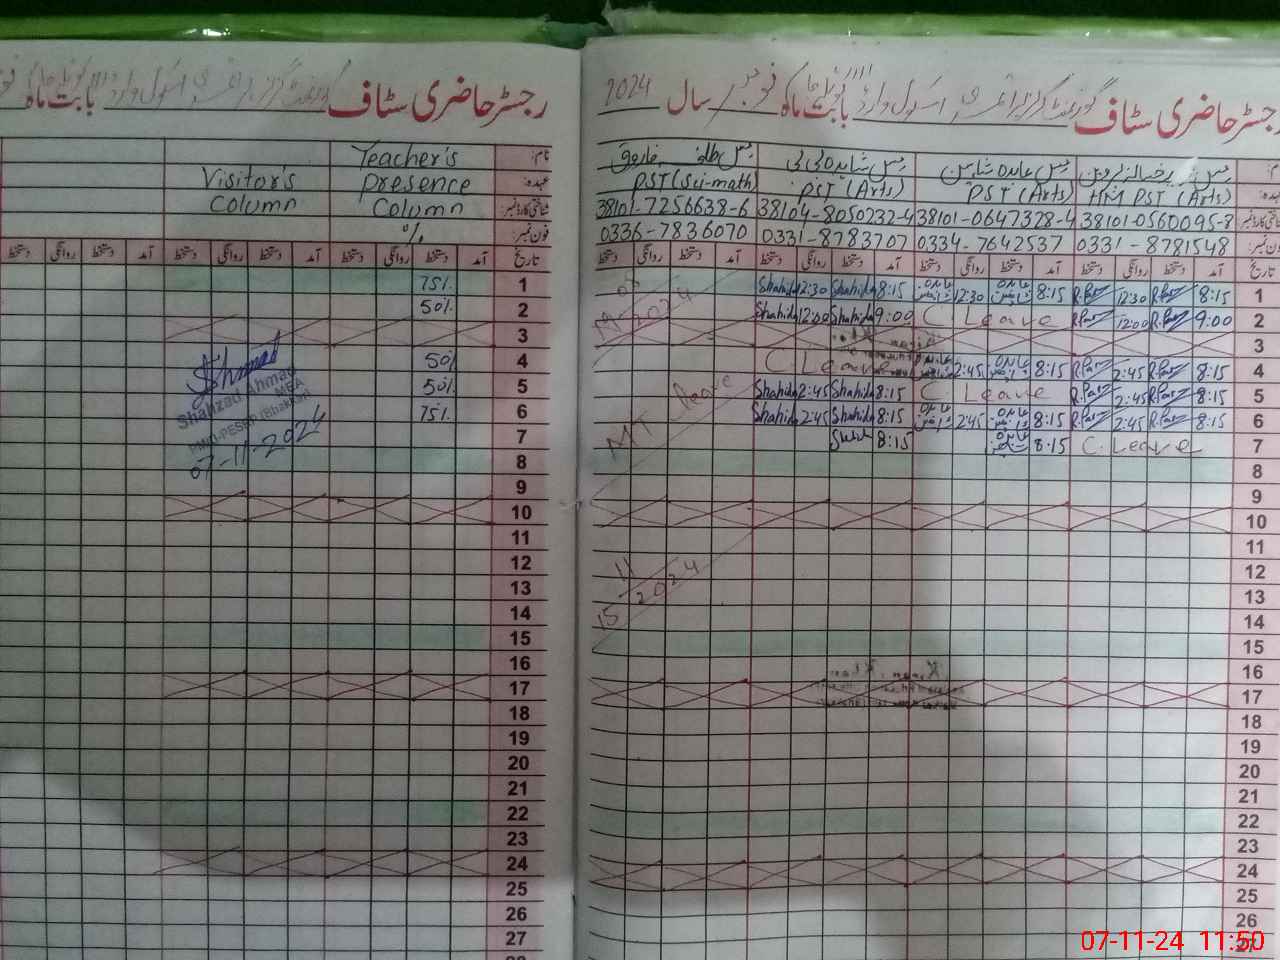 رجسٹر حاضری سٹاف گورنمنٹ گرلز پرائمری سکول وارڈ بابت ماہ نومبر سال 2024
نام: مس عابدہ شاہین مس شاہدہ بی بی
عہدہ: HM PST (Arts) PST (Arts) PST (Arts) PST (Sci-math)
شناختی کارڈ نمبر: 38101-0560095-8 38101-0647328-4 38104-8050232-4 38101-7256638-6
فون نمبر: 0331-8781548 0334-7642537 0331-8783707 0336-7836070
تاریخ آمد دستخط روانگی دستخط آمد دستخط روانگی دستخط آمد دستخط روانگی دستخط آمد دستخط روانگی دستخط
1 8:15 R.Par 12:30 R.Par 8:15 عابدہ شاہین 12:30 عابدہ شاہین 8:15 Shahida 12:30 Shahida
2 9:00 R.Par 12:00 R.Par C Leave 9:00 Shahida 12:00 Shahida
3
4 8:15 R.Par 2:45 R.Par 8:15 عابدہ شاہین 2:45 عابدہ شاہین C. Leave
5 8:15 R.Par 2:45 R.Par C Leave 8:15 Shahida 2:45 Shahida
6 8:15 R.Par 2:45 R.Par 8:15 عابدہ شاہین 2:45 عابدہ شاہین 8:15 Shahida 2:45 Shahida
7 C. Leave 8:15 عابدہ شاہین 8:15
8
9
10
11
12
13
14
15
16
17
18
19
20
21
22
23
24
25
26
27
2024
MT leave
15 11 2024
رجسٹر حاضری سٹاف گورنمنٹ گرلز پرائمری سکول وارڈ بابت ماہ
نام: Teacher's
عہدہ: presence Visitor's
شناختی کارڈ نمبر: Column Column
فون نمبر: %
تاریخ آمد دستخط روانگی دستخط آمد دستخط روانگی دستخط آمد دستخط روانگی دستخط
1 75%
2 50%
3
4 50%
5 50%
6 75%
7
8
9
10
11
12
13
14
15
16
17
18
19
20
21
22
23
24
25
26
27
28
Shahzad Ahmad
MEA
PMIU-PESRP (Bhakkar)
07-11-2024
07-11-24 11:50